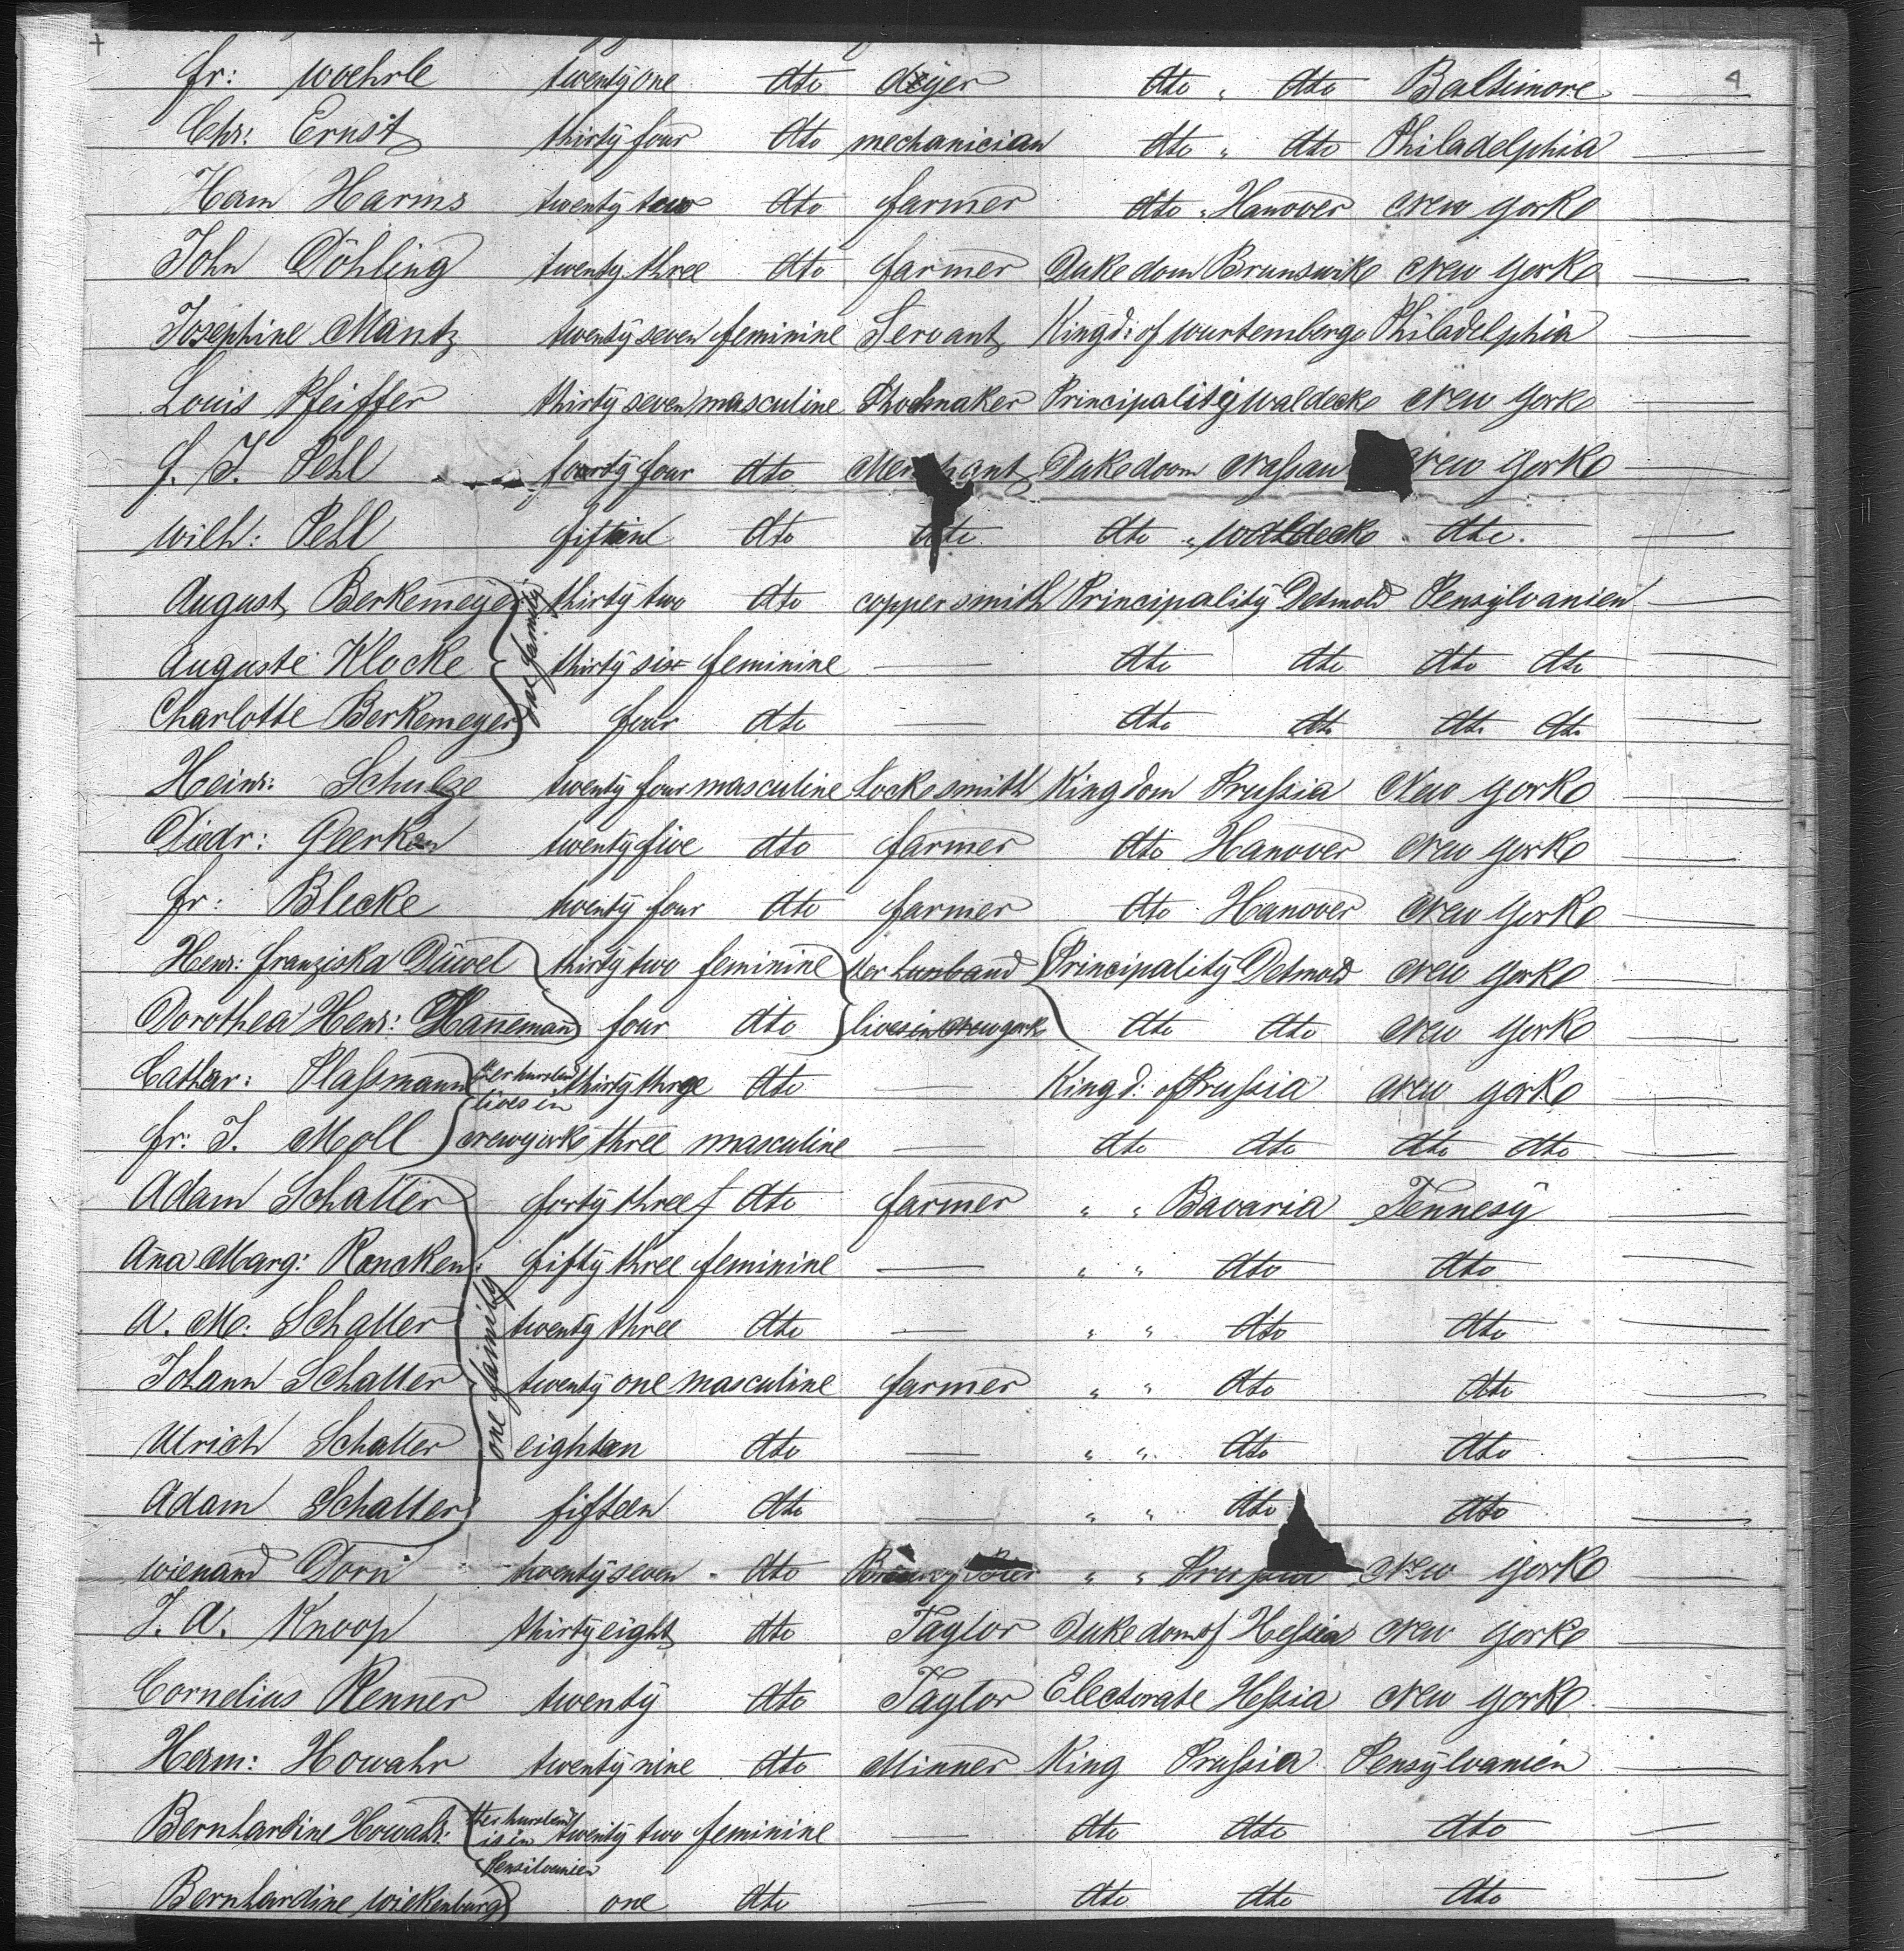 4
Fr: Woehrle twenty one dto dyer dto " dto Baltimore
Chr: Ernst thirty four dto mechanician dto " dto Philadelphia
Herm Harms twenty two dto farmer dto " Hanover New York
John Döhling twenty three dto farmer Dukedom Brunswik New York
Josephine Mantz twenty seven feminine Servant Kingd: of Wurtemberg Philadelphia
Louis Pfeiffer thirty seven masculine Shoemaker Principality Waldeck New York
F. J. Pehl fourty four dto Merchant Dukedom Nassau New York
Wilh: Pehl fiftine dto dto dto " Waldeck " dto.
August Berkemeyer one family thirty two dto coppersmith Principality Detmold Pensylvanien
Auguste Klocke thirty six feminine — dto dto dto dto
Charlotte Berkemeyer four dto — dto dto dto dto
Heinr: Schulze twenty four masculine Locksmith Kingdom Prussia New York
Diedr: Geerken twenty five dto farmer dto Hanover New York
Fr: Blecke twenty four dto farmer dto Hanover New York
Henr: Franziska Düwel thirty two feminine Her husband Principality Detmold New York
Dorothea Henr: Haneman four dto lives in New York dto dto New York
Cathar: Plassmann Her husband lives in thirty three dto — Kingd: of Prussia New York
Fr: J. Moll New york three masculine — dto dto dto dto
Adam Schaller forty three dto farmer " " Bavaria Tennesy
Ana Marg: Roncken: fifty three feminine — " " dto dto
A. M: Schaller one family twenty three dto — " " dto dto
Johann Schaller twenty one masculine farmer " " dto dto
Ulrich Schaller eighten dto — " " dto dto
Adam Schaller fifteen dto — " " dto dto
Wienand Dorn twenty seven dto " " Prussia New York
J. A. Knoop thirty eight dto Taylor Dukedom of Hessia New York
Cornelius Renner twenty dto Taylor Electorate Hessia New York
Herm: Howahr twenty nine dto Minner King Prussia Pensylvanien
Bernhardine Howahr: Her husband is in twenty two feminine — dto dto dto
Pensilvanien
Bernhardine Wiekenburg one dto — dto dto dto